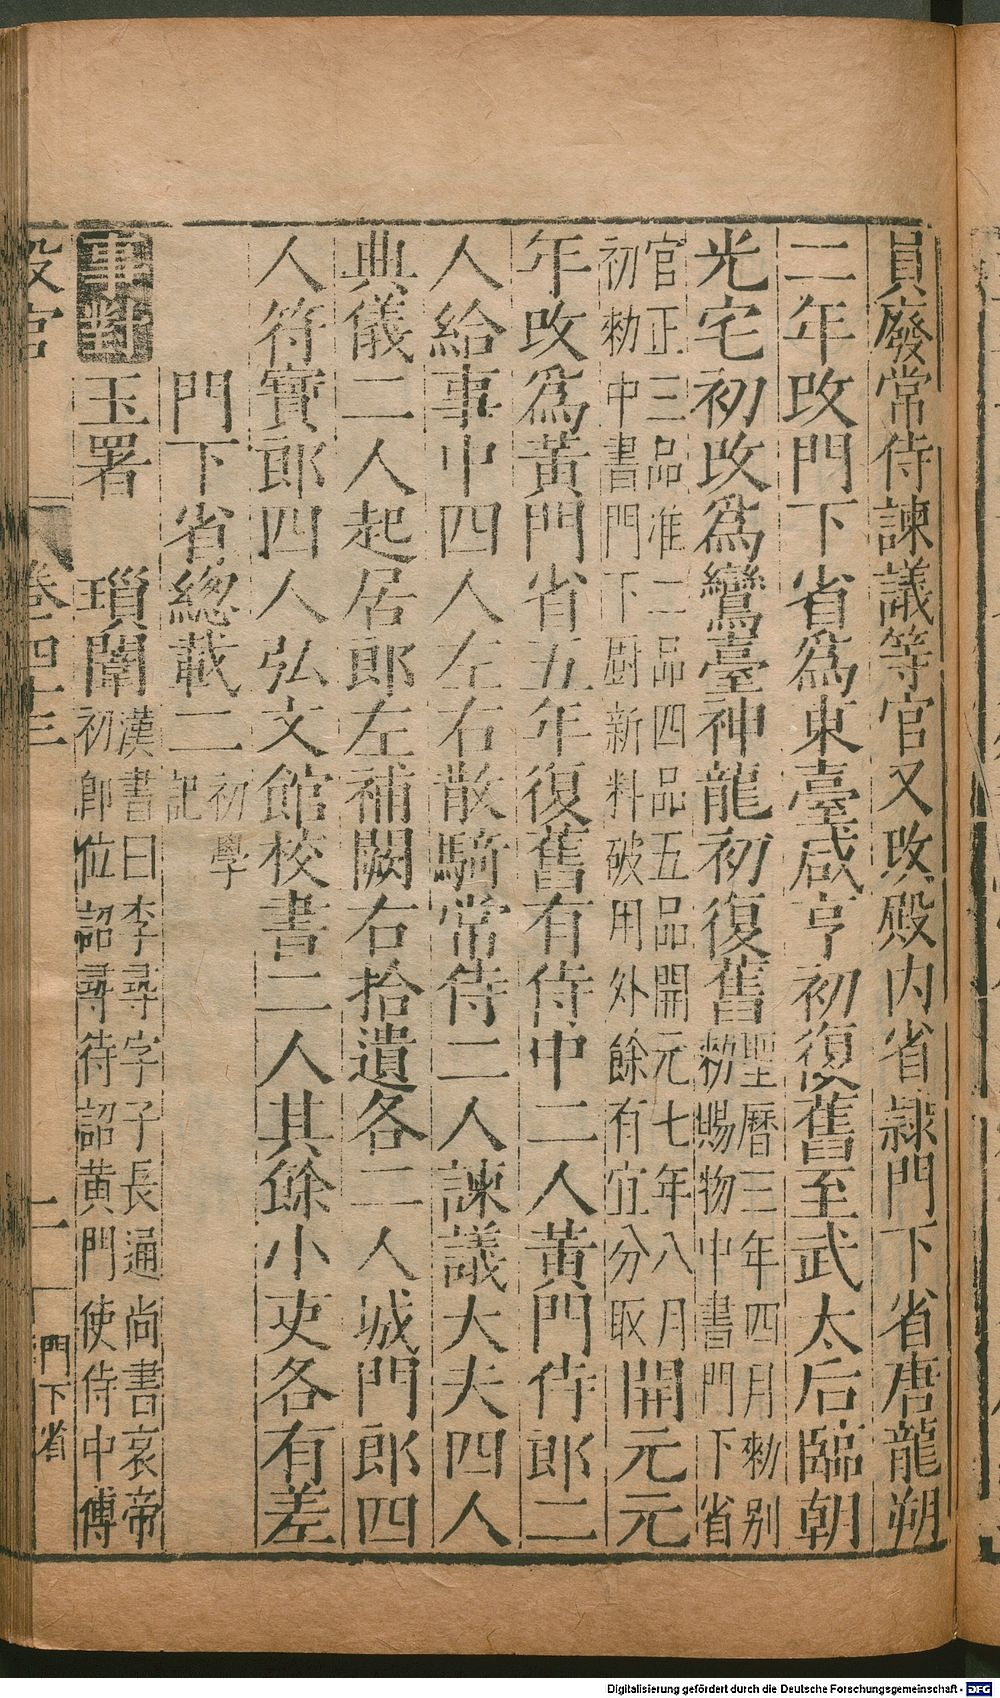 員廢常侍諫議等官又改殿内省隷門下省唐龍朔
二年改門下省爲東臺咸亨初復舊至武太后臨朝
光宅初改爲鸞臺神龍初復舊聖曆三年四月勑别
勑賜物中書門下省
官正三品准二品四品五品開元七年八月
初勑中書門下厨新料破用外餘有宜分取開元元
年改爲黄門省五年復舊有侍中二人黄門侍郎二
人給事中四人左右散騎常侍二人諫議大夫四人
典儀二人起居郎左補闕右拾遺各二人城門郎四
人符寳郎四人弘文館校書二人其餘小吏各有差
門下省總載二初學
記
事對
玉署 瑣闈漢書曰李尋字子長通尚書哀帝
初即位詔尋待詔黄門使侍中傅
設官 卷四十三 二 門下省
Digitalisierung gefördert durch die Deutsche Forschungsgemeinschaft - DFG